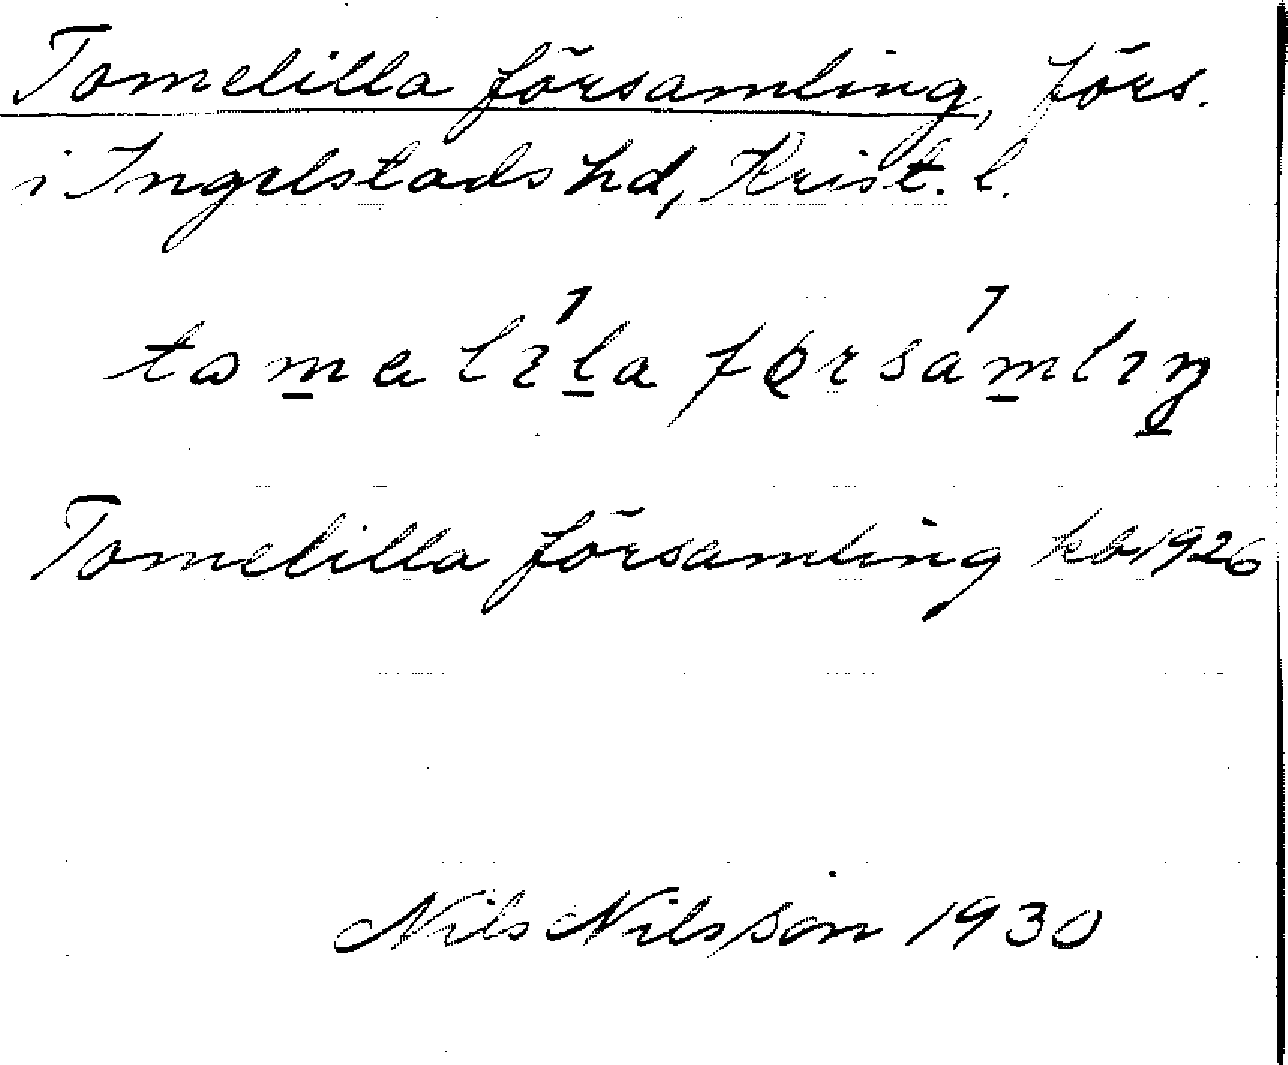 Tomelilla församling, förs.
i Ingelstads hd, Krist. l.
tomalíla førsámlıŋ
Tomelilla församling kb 1926
Nils Nilsson 1930